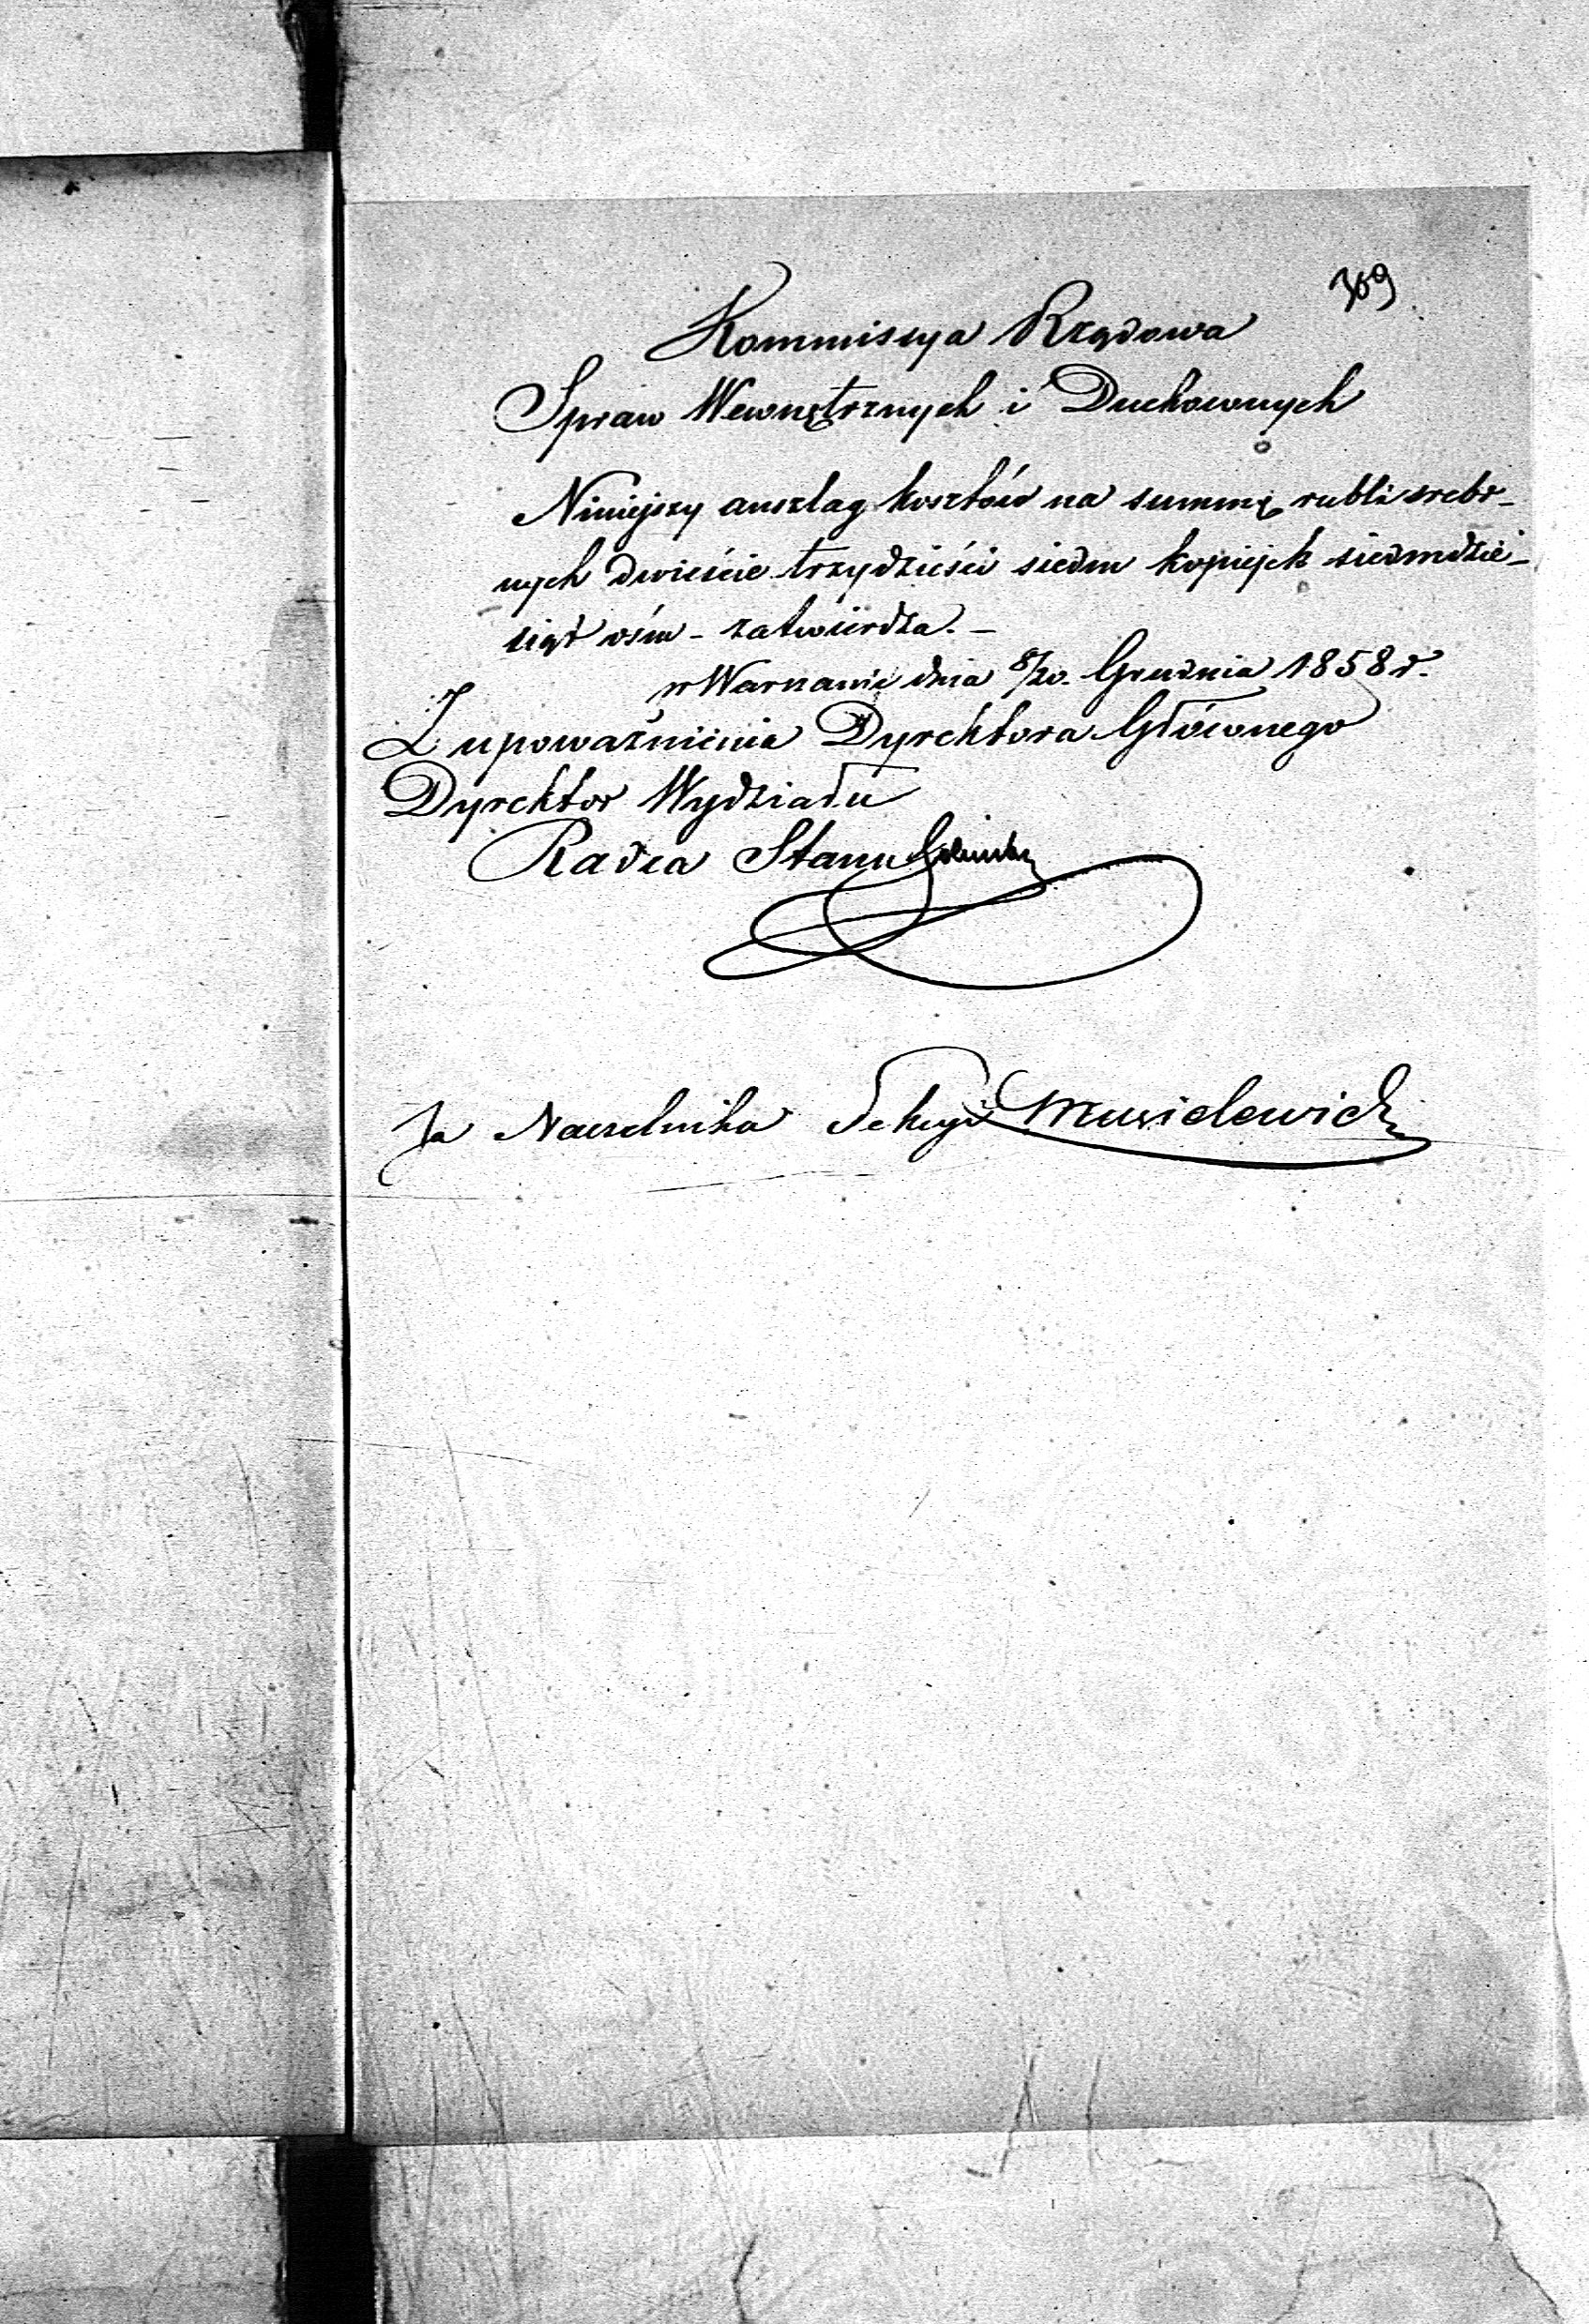 369
Kommissya Rządowa
Spraw Wewnętrznych i Duchownych
Niniejszy anszlag kosztów na summę rubli srebr-
nych dwieście trzydzieści siedm kopiejek siedmdzie-
siąt ośm - zatwierdza. -
w Warszawie dnia 8/20. Grudnia 1858 r.
Z upoważnienia Dyrektora Głównego
Dyrektor Wydziału
Radca Stanu
Za Naczelnika Sekcyi